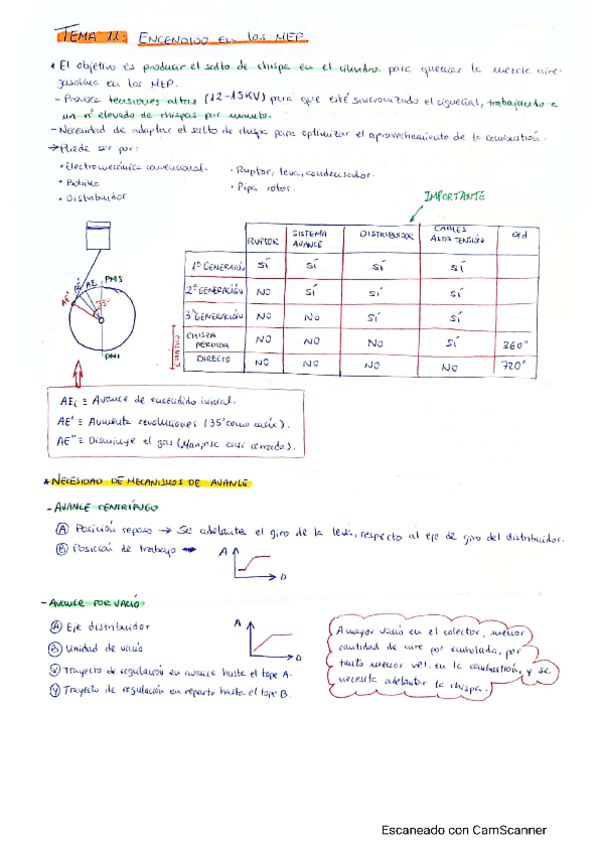 TEMA 11: ENCENDIDO EN LOS MEP
* El objetivo es producir el salto de chispa en el cilindro para quemar la mezcla aire-
gasolina en los MEP.
- Provoca tensiones altas (12-15KV) para que esté sincronizado el cigueñal, trabajando a
un nº elevado de chispas por minuto.
- Necesidad de adaptar el salto de chispa para optimizar el aprovechamiento de la combustión.
→ Puede ser por:
• Electromecánica convencional.
• Bobina
• Distribuidor
• Ruptor, leva, condensador.
• Pipa rotor.
IMPORTANTE
RUPTOR SISTEMA AVANCE DISTRIBUIDOR CABLES ALTA TENSIÓN
1º GENERACIÓN SÍ SÍ SÍ SÍ
2º GENERACIÓN NO SÍ SÍ SÍ
3º GENERACIÓN NO NO SÍ SÍ
CHISPA PERDIDA NO NO NO SÍ 360°
DIRECTO NO NO NO NO 720°
AE' AEi PMS
35°
PMI
AEi ≡ Avance de encendido inicial.
AE' ≡ Aumenta revoluciones (35° como máx).
AE'' ≡ Disminuye el gas (Mariposa casi cerrada).
* NECESIDAD DE MECANISMOS DE AVANCE
- AVANCE CENTRÍFUGO
Ⓐ Posición reposo → Se adelanta el giro de la leva, respecto al eje de giro del distribuidor.
Ⓑ Posición de trabajo
A
D
- AVANCE POR VACIO
Ⓐ Eje distribuidor
Ⓑ Unidad de vacío
Trayecto de regulación en avance hasta el tope A.
Trayecto de regulación en retardo hasta el tope B.
A
D
A mayor vacío en el colector, menor
cantidad de aire por embolada, por
tanto menor vel. en la combustión, y se
necesita adelantar la chispa.
Escaneado con CamScanner